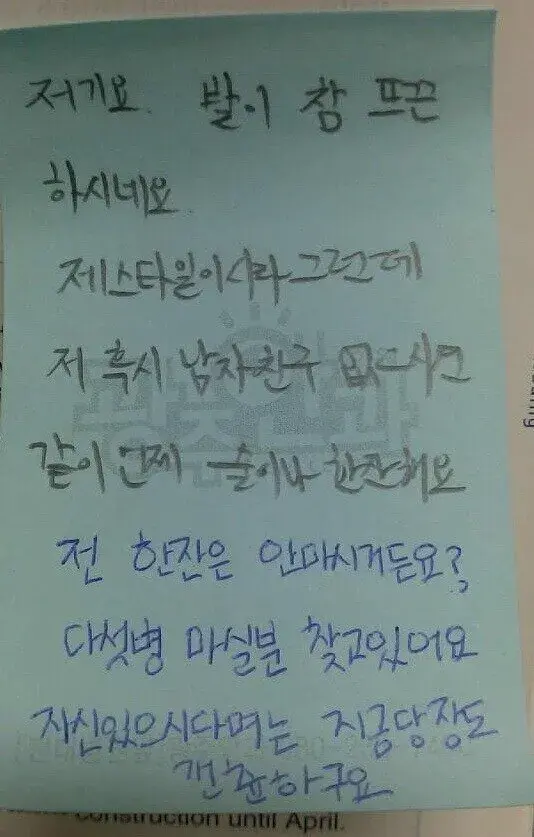 저기요. 발이 참 뜨끈
하시네요.
제스타일이시라그런데
저 혹시 남자친구 없으시면
같이 언제 술이나 한잔해요
전 한잔은 안마시거든요?
다섯병 마실분 찾고있어요
자신있으시다며는 지금당장도
갠찮하구요
construction until April.